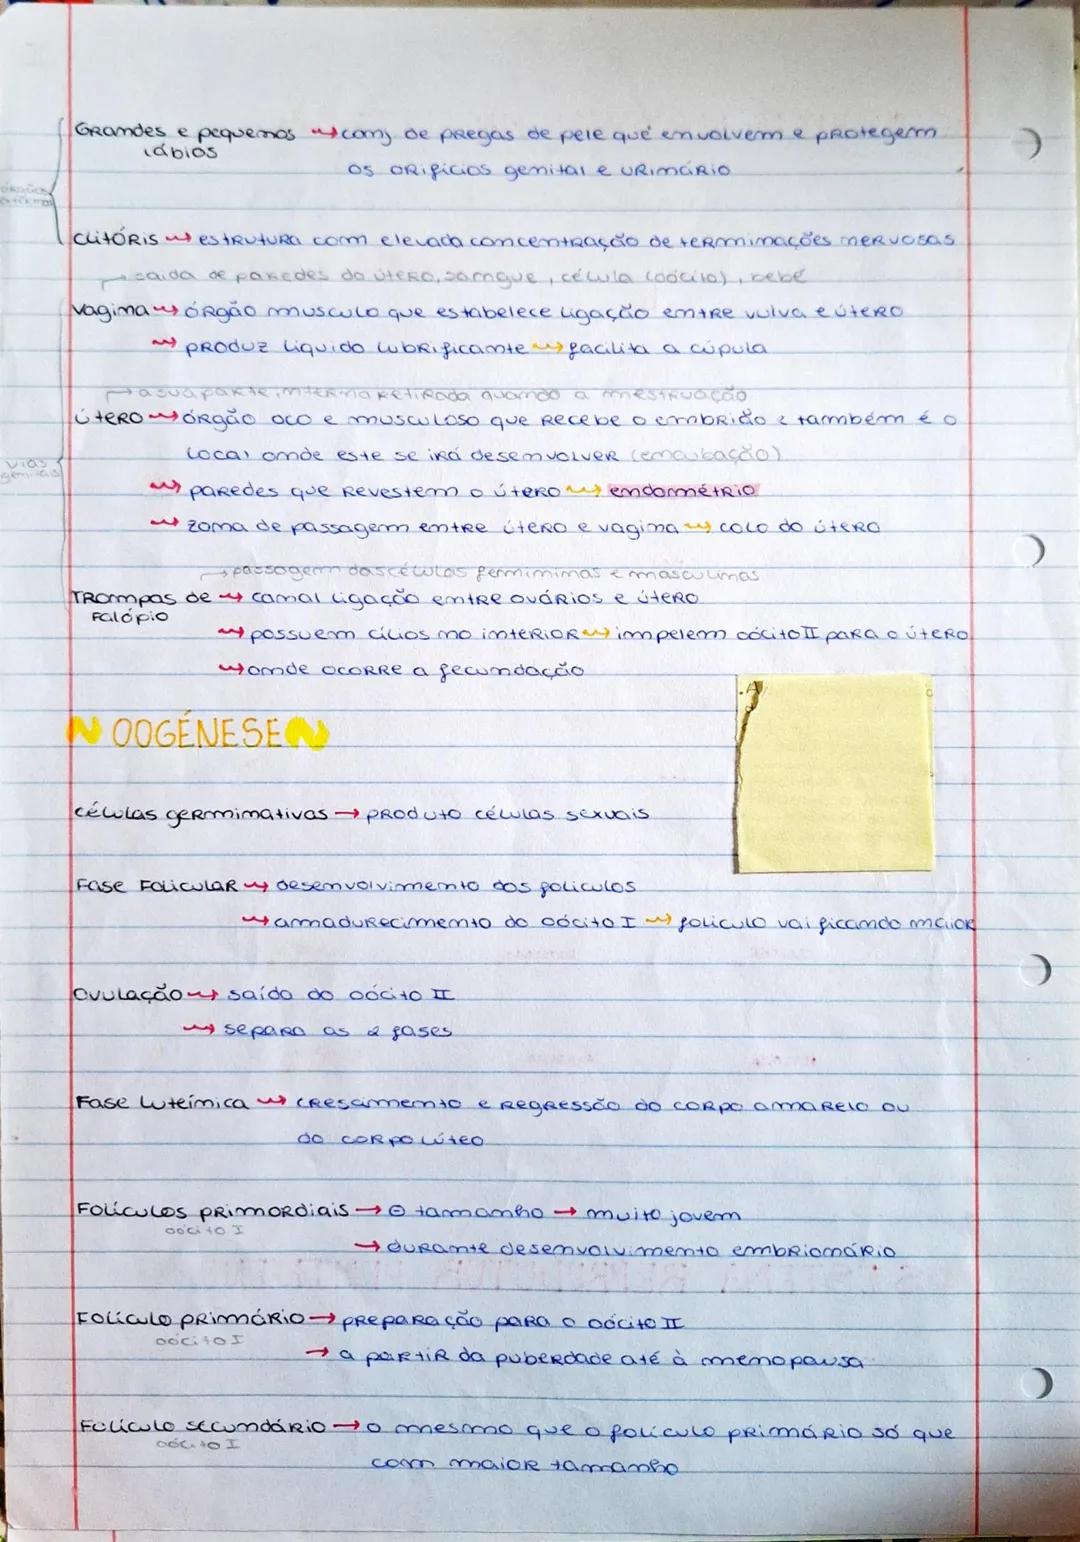 Grandes e pequenos ⇝ conj de pregas de pele que envolvem e protegem
lábios
os orifícios genital e urinário
órgãos
externos
Clitóris ⇝ estrutura com elevada concentração de terminações nervosas
→ saída de paredes do útero, sangue, célula (oócito), bebé
Vagina ⇝ órgão musculo que estabelece ligação entre vulva e útero
⇝ produz liquido lubrificante ⇝ facilita a cúpula
→ a sua parte interna retirada quando a mestruação
Útero ⇝ órgão oco e musculoso que recebe o embrião e também é o
local onde este se irá desenvolver
vias
genitais
⇝ paredes que revestem o útero ⇝ endométrio
⇝ zona de passagem entre útero e vagina ⇝ colo do útero
→ passagem das células femininas e masculinas
Trompas de ⇝ canal ligação entre ovários e útero
Falópio
⇝ possuem cílios no interior ⇝ impelem oócito II para o útero
⇝ onde ocorre a fecundação
~ OOGÉNESE ~
células germinativas → produto células sexuais
Fase Folicular ⇝ desenvolvimento dos foliculos
⇝ amadurecimento do oócito I ⇝ foliculo vai ficando maior
Ovulação ⇝ saída do oócito II
⇝ separa as 2 fases
Fase luteínica ⇝ crescimento e regressão do corpo amarelo ou
do corpo lúteo
Folículos primordiais → ⊖ tamanho → muito jovem
oócito I
→ durante desenvolvimento embrionário
Folículo primário → preparação para o oócito II
oócito I
→ a partir da puberdade até à menopausa
Folículo secundário → o mesmo que o folículo primário só que
oócito I
com maior tamanho